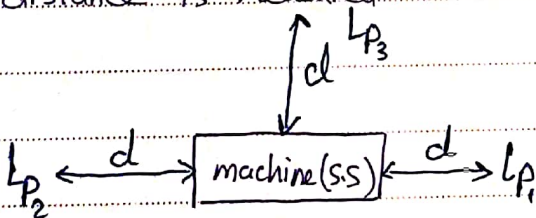 L_P3
d
L_P2 d machine (S.S) d L_P1